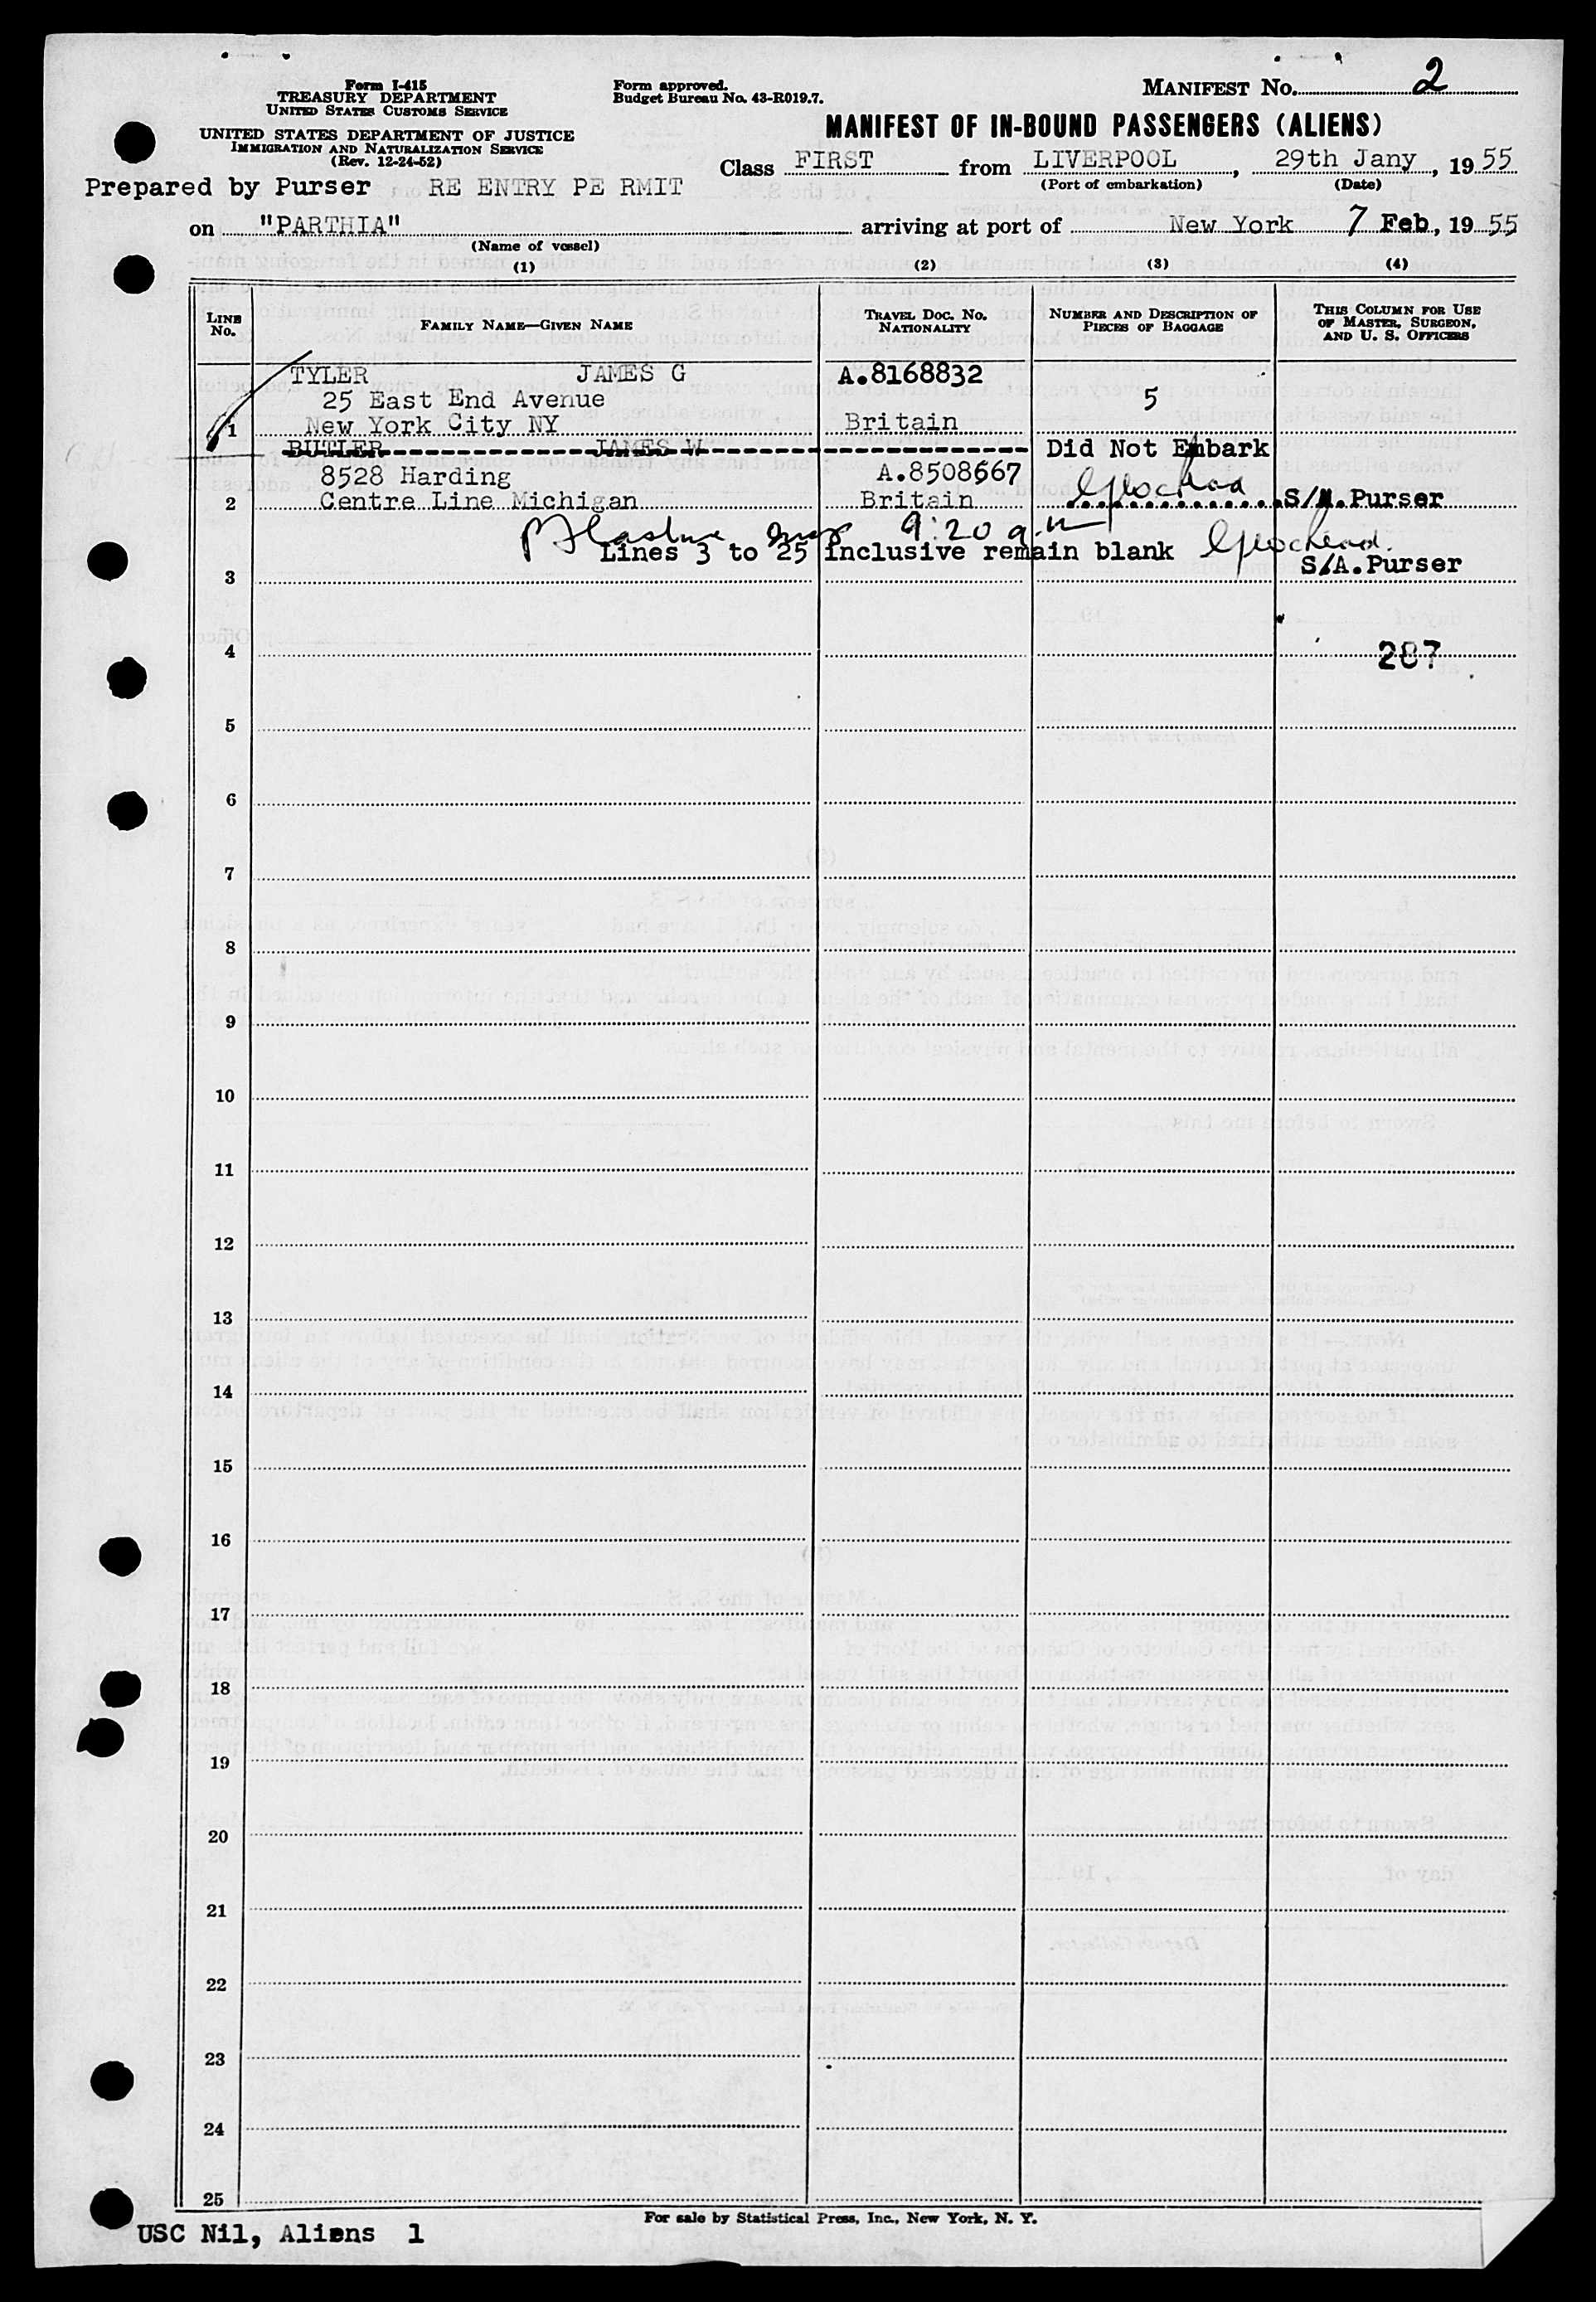 Form I-415
TREASURY DEPARTMENT
UNITED STATES CUSTOMS SERVICE
UNITED STATES DEPARTMENT OF JUSTICE
IMMIGRATION AND NATURALIZATION SERVICE
(Rev. 12-24-52)
Form approved.
Budget Bureau No. 43-R019.7.
MANIFEST No. 2
MANIFEST OF IN-BOUND PASSENGERS (ALIENS)
Class FIRST from LIVERPOOL, 29th Jany, 1955
(Port of embarkation) (Date)
Prepared by Purser RE ENTRY PE RMIT
on "PARTHIA" arriving at port of New York 7 Feb, 1955
(Name of vessel)
(1) (2) (3) (4)
LINE No. FAMILY NAME—GIVEN NAME TRAVEL DOC. No. NATIONALITY NUMBER AND DESCRIPTION OF PIECES OF BAGGAGE THIS COLUMN FOR USE OF MASTER, SURGEON, AND U. S. OFFICERS
TYLER JAMES G A.8168832
25 East End Avenue 5
1 New York City NY Britain
BUTLER JAMES W Did Not Embark
8528 Harding A.8508667
2 Centre Line Michigan Britain S/A.Purser
9:20 am
Lines 3 to 25 inclusive remain blank
3 S/A.Purser
4 287
5
6
7
8
9
10
11
12
13
14
15
16
17
18
19
20
21
22
23
24
25
For sale by Statistical Press, Inc., New York, N. Y.
USC Nil, Aliens 1